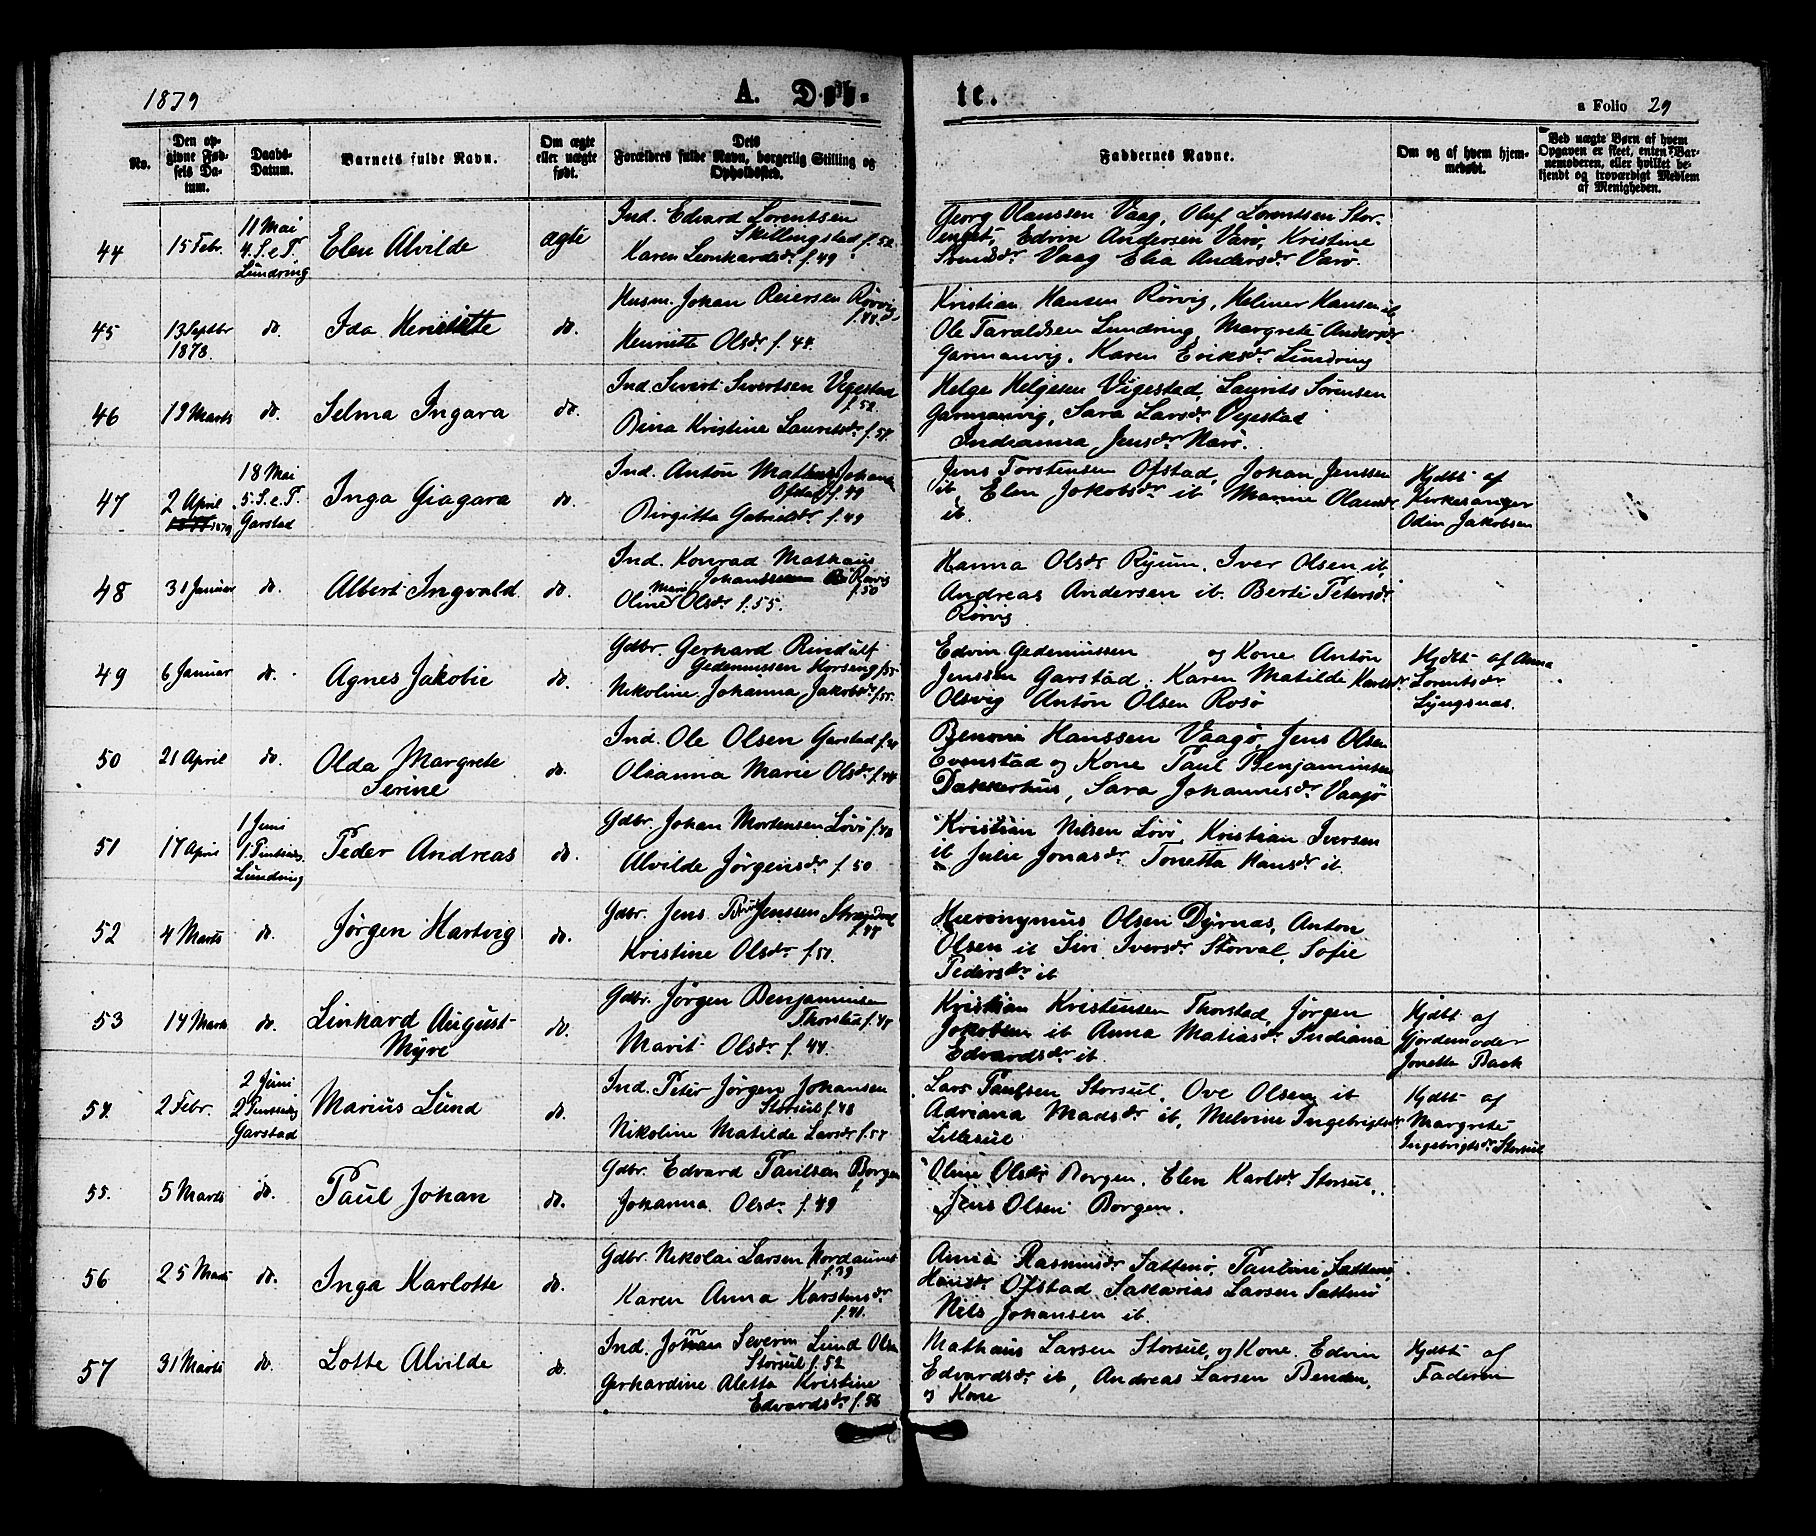 1879
A. Døb-
te.
a Folio 29
No.
Den op-
givne Fød-
sels Da-
tum.
Daabs-
Datum.
Barnets fulde Navn.
Om ægte
eller uægte
født.
Dets
Forældres fulde Navn, borgerlig Stilling og
Opholdssted.
Faddernes Navne.
Om og af hvem hjem-
medøbt.
Ved uægte Børn af hvem
Opgaven er skeet, enten Bar-
nemoderen, eller hvilket be-
kjendt og troværdigt Medlem
af Menigheden.
44
15 Febr.
11 Mai
4. S. e. P.
Lundring
Elen Alvilde
ægte
Ind. Edvard Lorentsen
Skillingstad f. 52
Karen Leonhardsdr f. 49
Georg Olaussen Vaag, Oluf Lorentsen Stor-
enget, Edvin Andersen Varø, Kristine
Vaag Elia Andersdr Varø.
45
13 Septbr
1878.
do.
Ida Henriette
do.
Husm. Johan Reiersen Rörvig
f. 48.
Henriette Olsdr f. 44.
Kristian Hansen Rörvig, Helmer Hansen ib
Ole Taraldsen Lundring, Margrete Andersdr
Garmanvig, Karen Eriksdr Lundring
46
19 Marts
do.
Selma Ingara
do.
Ind. Sivert Sivertsen Vegestad
f. 52
Bina Kristine Lauritsdr f. 57.
Helge Helgesen Vigestad, Laurits Sørensen
Garmanvig, Sara Larsdr Vegestad
Indianna Jensdr Narö.
47
2 April
1879
18 Mai
5. S. e. P.
Garstad
Inga Giagara
do.
Ind. Anton Johan
Ofstad f. 49
Birgitta Gabrielsdr f. 49
Jens Torstensen Ofstad, Johan Jenssen
ib, Elen Jakobsdr ib Manne Olausdr
ib.
Hjdbt af
Kirkesanger
Odin Jakobsen
48
31 Januar
do.
Albert Ingvald
do.
Ind. Konrad Mathaus
Johanssen Rörvig
f. 50
Oline Marie Olsdr f. 55.
Hanna Olsdr Ryum, Iver Olsen ib,
Andreas Andersen ib. Berti Petersdr
Rörvig
49
6 Januar
do.
Agnes Jakobie
do.
Gdbr. Gerhard Rindulf
Gedeniussen Horseng f. 55
Nikoline Johanna Jakobsdr f. 55.
Edvin Gedeniussen og Kone Anton
Jenssen Garstad, Karen Matilde Karlsdr
Olsvig Anton Olsen Rosø
Hjdbt af Anna
Lorentsdr
Lyngsnæs.
50
21 April
do.
Olda Margrete
Serine
do.
Ind. Ole Olsen Garstad
Olianna Marie Olsdr f. 44
Benoni Hanssen Vaagø, Jens Olsen
Evenstad og Kone Paul Benjaminsen
Dakkerhus, Sara Johannesdr Vaagø
51
17 April
1 Juni
1 Pintsedag
Lundring
Peder Andreas
do.
Gdbr. Johan Mortensen Lövö f. 48
Alvilde Jörgensdr f. 50
Kristian Nilsen Lövö, Kristian Iversen
ib Julie Jonasdr Tonetta Hansdr ib.
52
4 Marts
do.
Jörgen Hartvig
do.
Gdbr. Jens Jenssen
Kristine Olsdr f. 51.
Hieronymus Olsen Dyrnæs, Anton
Olsen ib Siri Iversdr Storval, Sofie
Pedersdr ib
53
14 Marts
do.
Linhard August
Myre
do.
Gdbr. Jörgen Benjaminsen
Thorstad f. 48
Marit Olsdr f. 44.
Kristian Kristensen Thorstad, Jörgen
Jakobsen ib Anna Matiasdr Indiana
Edvardsdr ib.
Hjdbt af
Gjordemoder
Jonette Bach
54.
2 Febr.
2 Juni
2 Pintsedag
Garstad
Marius Lund
do.
Ind. Peter Jörgen Johansen
Storsul f. 48
Nikoline Matilde Larsdr f. 57
Lars Paulsen Storsul, Ove Olsen ib
Adriana Madsdr ib, Melvine Ingebrigtsdr
Lillesul
Hjdbt af
Margrete
Ingebrigtsdr Storsul
55.
5 Marts
do.
Paul Johan
do.
Gdbr. Edvard Paulsen Borgen
Johanna Olsdr f. 49
Oline Olsdr Borgen, Elen Karlsdr Storsul,
Jens Olsen Borgen.
56
25 Marts
do.
Inga Karlotte
do.
Gdbr. Nikolai Larsen Nordaunet
f. 39
Karen Anna Karstensdr
f. 41.
Anna Rasmusdr Sattenö, Pauline Sattenö
Hansdr Ofstad Sakarias Larsen Sattenö
Nils Johansen ib.
57
31 Marts
do.
Lotte Alvilde
do.
Ind. Johan Severin Lund Olsen
Storsul f. 52
Gerhardine Aletta Kristine
Edvardsdr f. 56
Mathaus Larsen Storsul, og Kone. Edvin
Edvardsdr ib, Andreas Larsen Benden,
og Kone
Hjdbt af
Faderen